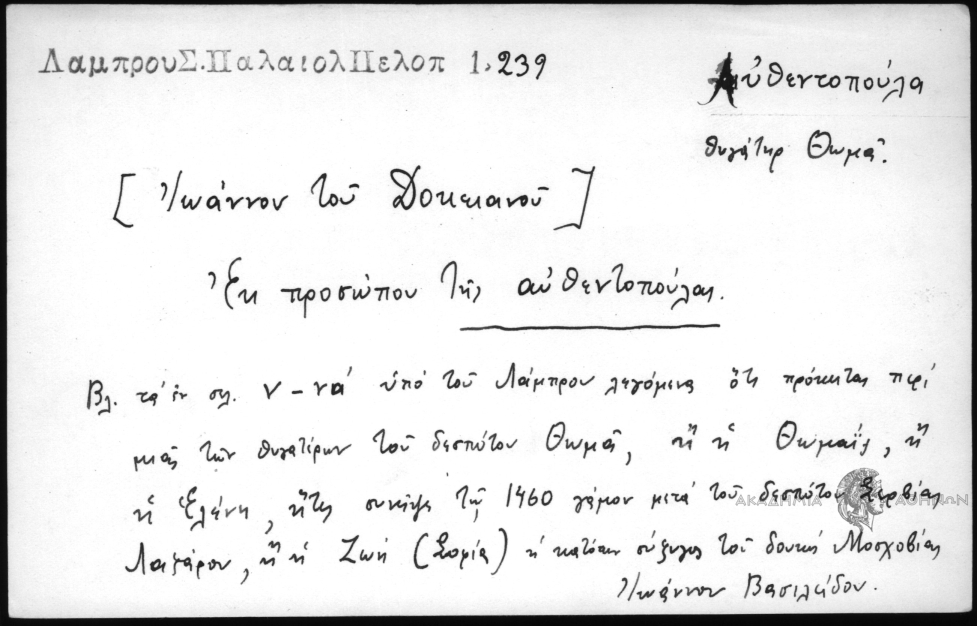 ΛαμπρουΣ.ΠαλαιολΠελοπ 1,239
Αὐθεντοπούλα
θυγάτηρ Θωμᾶ.
[Ἰωάννου τοῦ Δοκειανοῦ]
Ἐκ προσώπου τῆς αὐθεντοπούλας.
Βλ. τὰ ἐν σελ. ν-να' ὑπὸ τοῦ Λάμπρου λεγόμενα ὅτι πρόκειται περὶ
μιᾶς τῶν θυγατέρων τοῦ δεσπότου Θωμᾶ, ἢ ἡ Θωμαΐς, ἢ
ἡ Ἑλένη, ἥτις συνῆψε τῷ 1460 γάμον μετὰ τοῦ δεσπότου Σερβίας
Λαζάρου, ἢ ἡ Ζωὴ (Σοφία) ἡ κατόπιν σύζυγος τοῦ δουκὸς Μοσχοβίας
Ἰωάννου Βασιλείδου.
ΑΚΑΔΗΜΙΑ ΑΘΗΝΩΝ